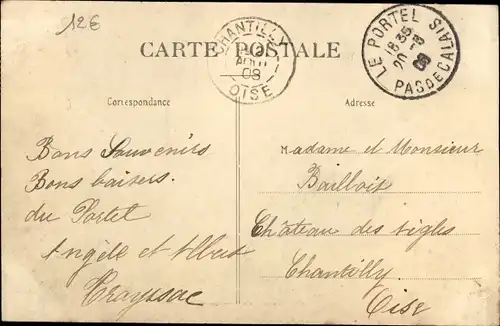 12€
CARTE POSTALE
CHANTILLY
AOUT
08
OISE
LE PORTEL
18 35
20 -8
08
PAS DE CALAIS
Correspondance
Adresse
Bons Souvenirs
Bons baisers.
du Portel
Angèle et Albert
Trayssac
Madame et Monsieur
Bailloit
Château des aigles
Chantilly
Oise